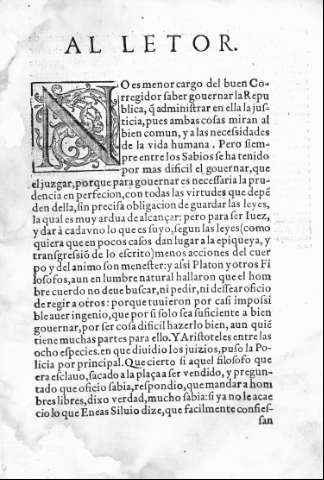 AL LETOR.
NO es menor cargo del buen Co-
rregidor saber gouernar la Repu
blica, q̃ administrar en ella la jus-
ticia, pues ambas cosas miran al
bien comun, y a las necessidades
de la vida humana. Pero siem-
pre entre los Sabios se ha tenido
por mas dificil el gouernar, que
el juzgar, porque para gouernar es necessaria la pru-
dencia en perfecion, con todas las virtudes que depẽ
den della, sin precisa obligacion de guardar las leyes,
la qual es muy ardua de alcançar: pero para ser Iuez,
y dar à cada vno lo que es suyo, segun las leyes (como
quiera que en pocos casos dan lugar a la epiqueya, y
transgressiõ de lo escrito) menos acciones del cuer
po y del animo son menester: y assi Platon y otros Fi
losofos, aun en lumbre natural hallaron que el hom
bre cuerdo no deue buscar, ni pedir, ni dessear oficio
de regir a otros: porque tuuieron por casi imposi
ble auer ingenio, que por si solo sea suficiente a bien
gouernar, por ser cosa dificil hazerlo bien, aun quiẽ
tiene muchas partes para ello. Y Aristoteles entre las
ocho especies. en que diuidio los juizios, puso la Po-
licia por principal. Que cierto si aquel filosofo que
era esclauo, sacado a la plaça a ser vendido, y pregun-
tado que oficio sabia, respondio, que mandar a hom
bres libres, dixo verdad, mucho sabia: si ya no le acae
cio lo que Eneas Siluio dize, que facilmente confies-
san